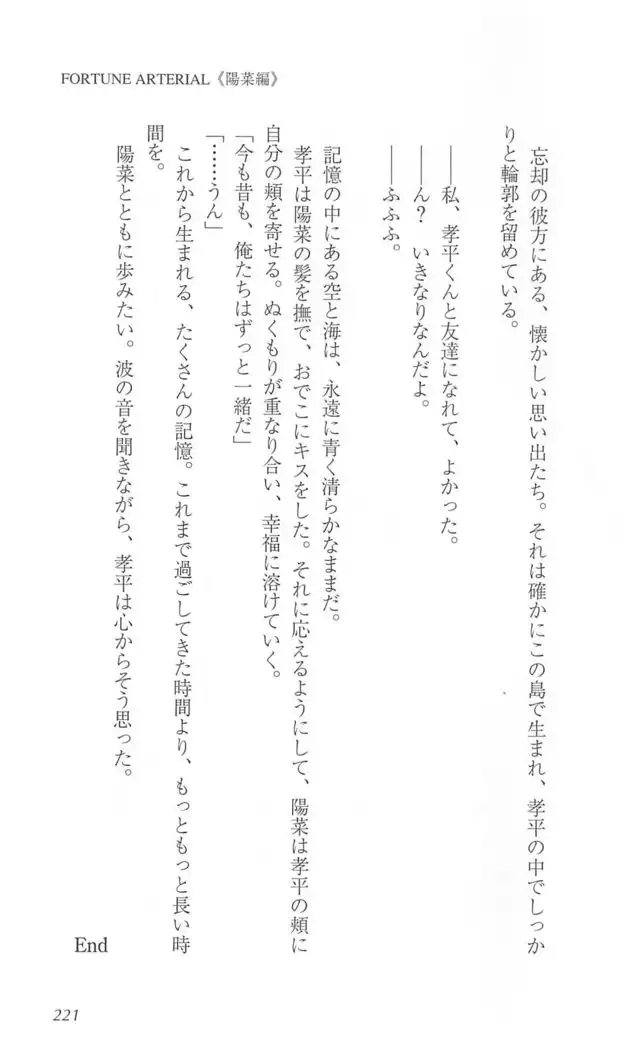 FORTUNE ARTERIAL《陽菜編》
　忘却の彼方にある、懐かしい思い出たち。それは確かにこの島で生まれ、孝平の中でしっか
りと輪郭を留めている。
　――私、孝平くんと友達になれて、よかった。
　――ん？　いきなりなんだよ。
　――ふふふ。
　記憶の中にある空と海は、永遠に青く清らかなままだ。
　孝平は陽菜の髪を撫で、おでこにキスをした。それに応えるようにして、陽菜は孝平の頬に
自分の頬を寄せる。ぬくもりが重なり合い、幸福に溶けていく。
「今も昔も、俺たちはずっと一緒だ」
「……うん」
　これから生まれる、たくさんの記憶。これまで過ごしてきた時間より、もっともっと長い時
間を。
　陽菜とともに歩みたい。波の音を聞きながら、孝平は心からそう思った。
End
221